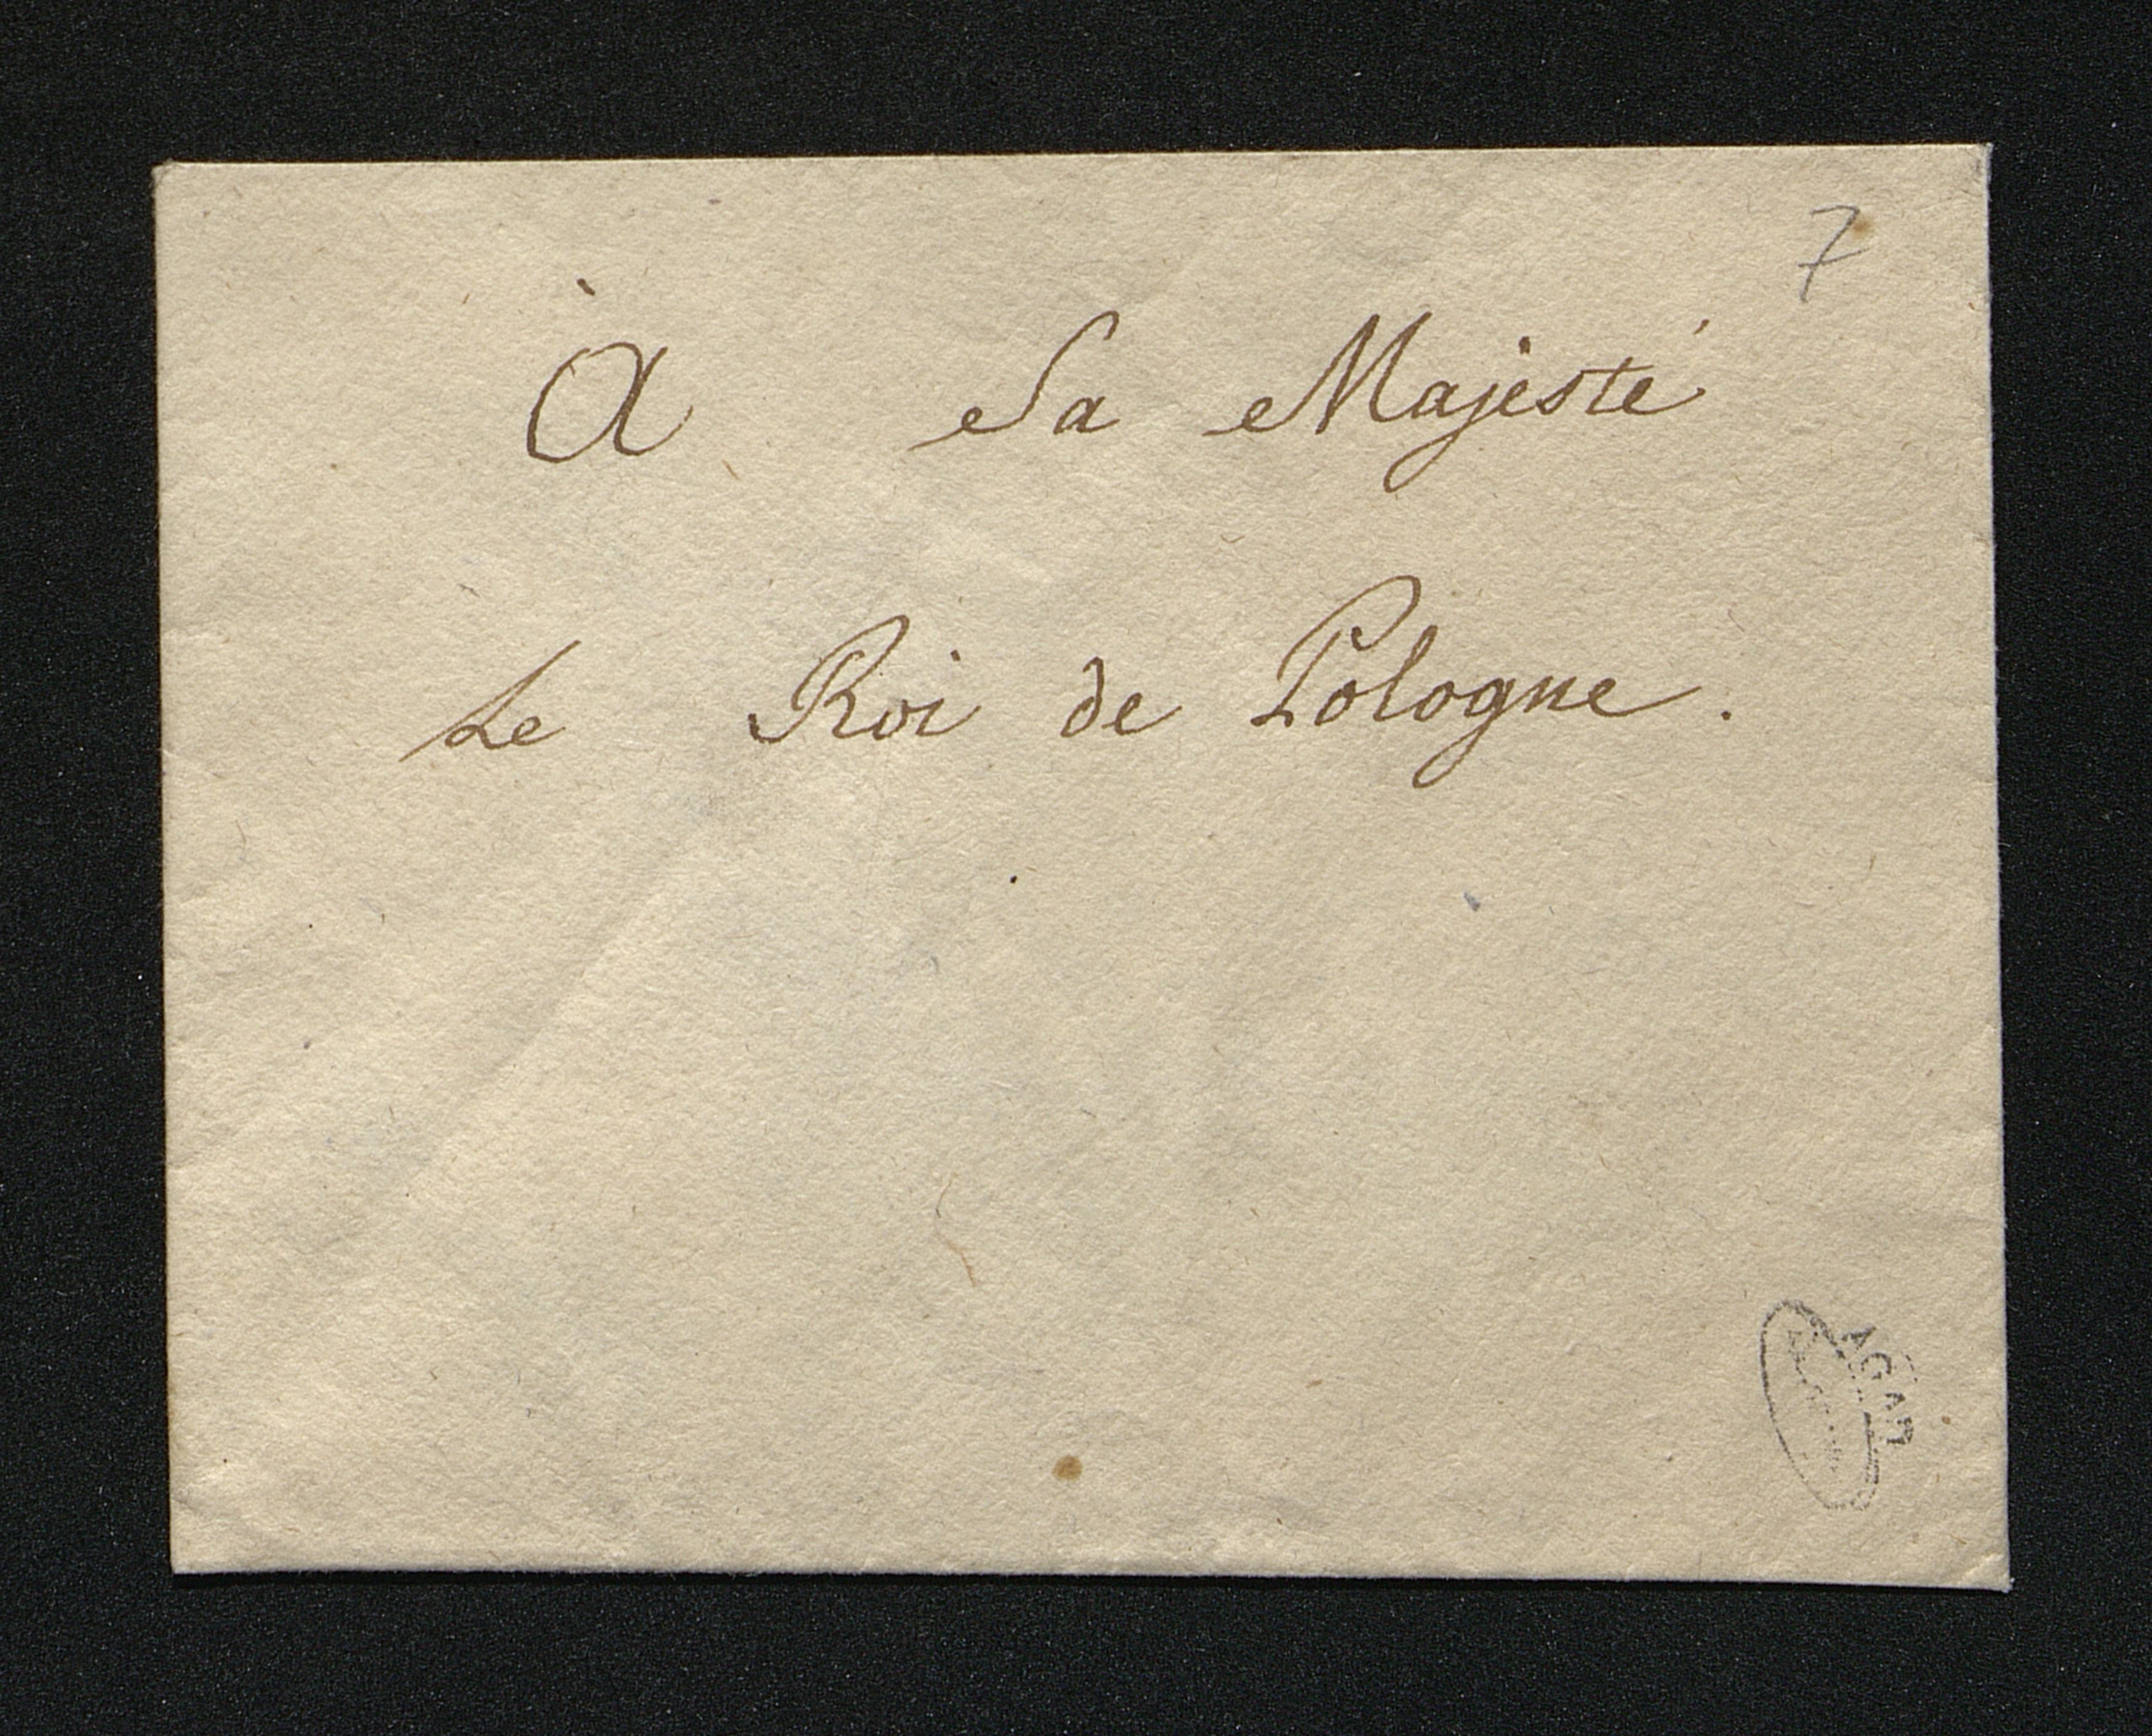 7
À Sa Majesté
Le Roi de Pologne.
AGAD